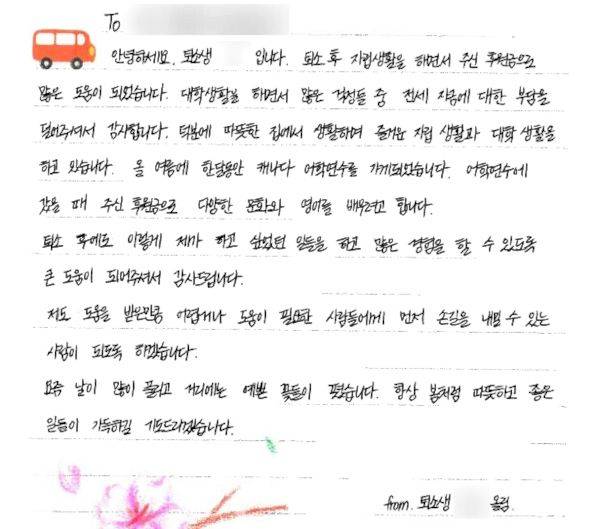 To
안녕하세요. 퇴소생 입니다. 퇴소 후 자립생활을 하면서 주신 후원금으로
많은 도움이 되었습니다. 대학생활을 하면서 많은 걱정들 중 전세 자금에 대한 부담을
덜어주셔서 감사합니다. 덕분에 따뜻한 집에서 생활하며 즐거운 자립 생활과 대학 생활을
하고 있습니다. 올 여름에 한달동안 캐나다 어학연수를 가게되었습니다. 어학연수에
갔을 때 주신 후원금으로 다양한 문화와 영어를 배우려고 합니다.
퇴소 후에도 이렇게 제가 하고 싶었던 일들을 하고 많은 경험을 할 수 있도록
큰 도움이 되어주셔서 감사드립니다.
저도 도움을 받은만큼 어렵거나 도움이 필요한 사람들에게 먼저 손길을 내밀 수 있는
사람이 되도록 하겠습니다.
요즘 날이 많이 풀리고 거리에는 예쁜 꽃들이 폈습니다. 항상 봄처럼 따뜻하고 좋은
일들이 가득하길 기도드리겠습니다.
from. 퇴소생 올림